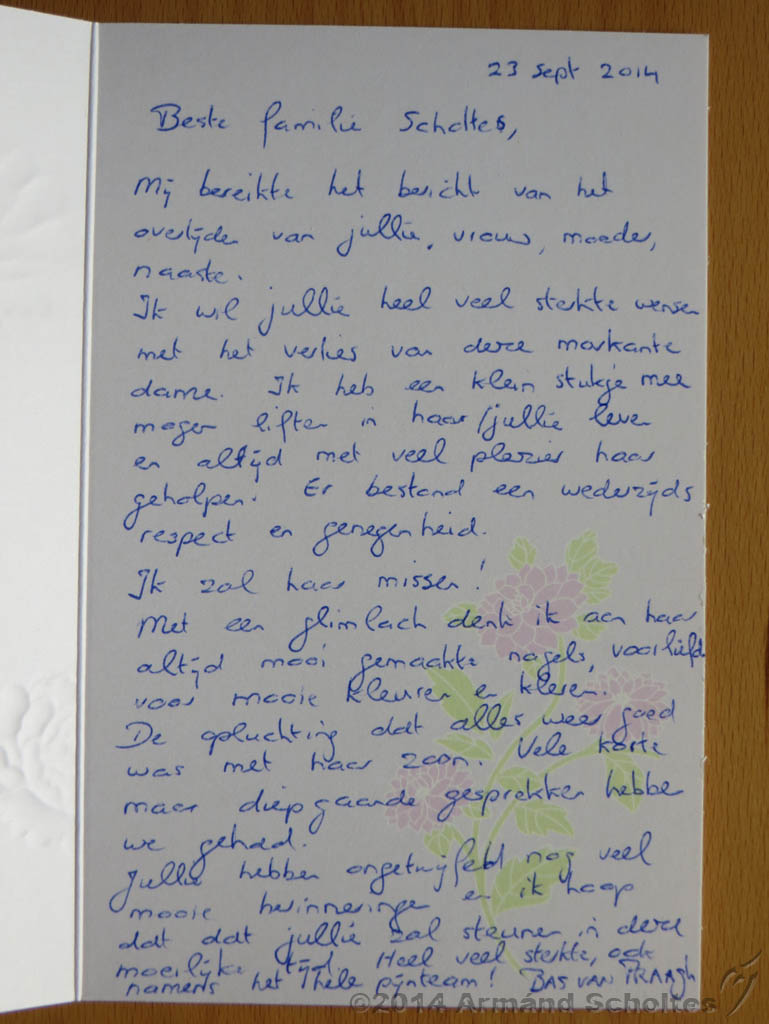 23 sept 2014
Beste familie Scholtes,
Mij bereikte het bericht van het
overlijden van jullie, vrouw, moeder,
naaste.
Ik wil jullie heel veel sterkte wensen
met het verlies van deze markante
dame. Ik heb een klein stukje mee
mogen liften in haar/jullie leven
en altijd met veel plezier haar
geholpen. Er bestond een wederzijds
respect en genegenheid.
Ik zal haar missen!
Met een glimlach denk ik aan haar
altijd mooi gemaakte nagels, voorliefde
voor mooie kleuren en kleren.
De opluchting dat alles weer goed
was met haar zoon. Vele korte
maar diepgaande gesprekken hebben
we gehad.
Jullie hebben ongetwijfeld nog veel
mooie herinneringen en ik hoop
dat dat jullie zal steunen in deze
moeilijke tijd. Heel veel sterkte, ook
namens het hele pijnteam! BAS VAN PRAAGH
©2014 Armand Scholtes